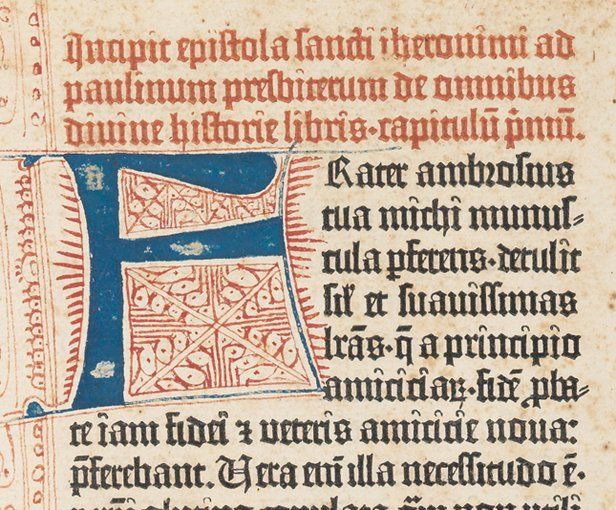 Incipit epistola sancti iheronimi ad
paulinum presbiterum de omnibus
divine historie libris·capitulū p̄mū.
FRater ambrosius
tua michi munus⸗
cula ꝑferens·detulit
sil̛ et suavissimas
lr̄as·q̄ a principio
amiciciaꝝ·fidē ꝓba⸗
te iam fidei ⁊ veteris amicicie nova:
p̄ferebant. Vera enī illa necessitudo ē·